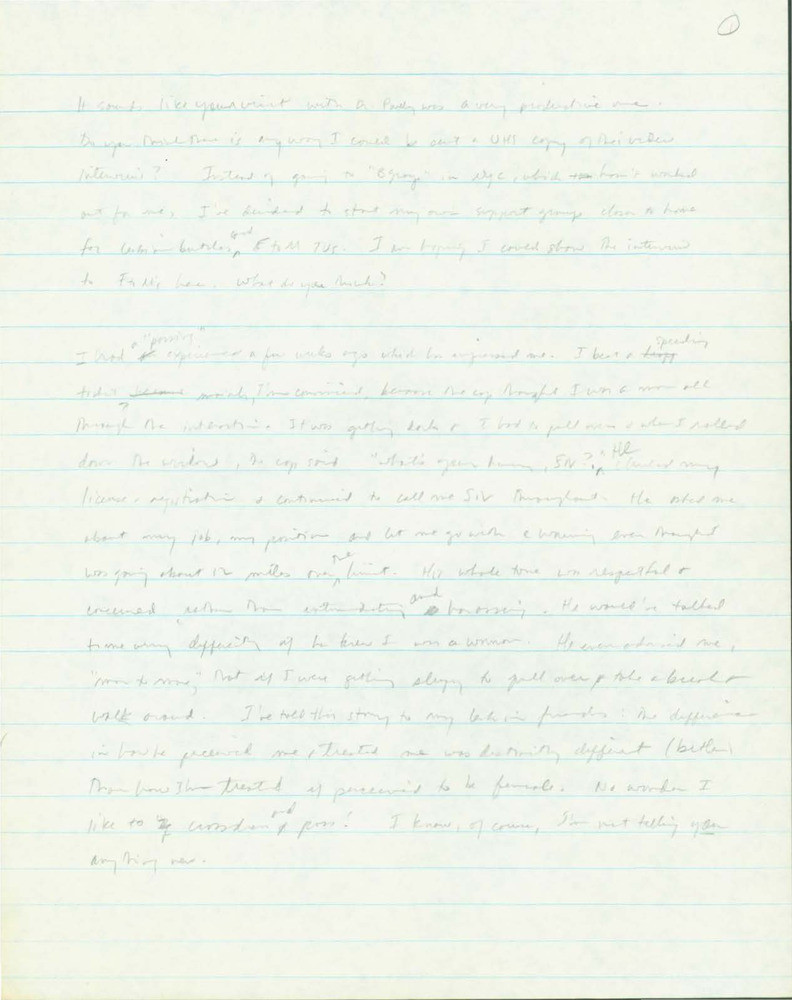 1
It sounds like your visit with Dr. Pauly was a very productive one.
Do you think there is any way I could be sent a VHS copy of that video
interview? Instead of going to "B group" in NYC, which hasn't worked
out for me, I've decided to start my own support group closer to home
for lesbian butches, and F to M TVs. I am hoping I could show the interview
to F to Ms here. What do you think?
I had a "passing" experience a few weeks ago which has me. I beat a speeding
ticket mainly, I'm convinced, because the cop thought I was a man all
through the interaction. It was getting dark & I had to pull over & when I rolled
down the window, the cop said "What's your hurry, Sir?" He checked my
license & registration & continued to call me Sir throughout. He asked me
about my job, my position and let me go with a warning even though I
was going about 12 miles over the limit. His whole tone was respectful &
concerned rather than intimidating and harassing. He would've talked
to me very differently if he knew I was a woman. He even advised me,
"man to man," that if I were getting sleepy to pull over & take a break &
walk around. I've told this story to my lesbian friends: the difference
in how he perceived me & treated me was distinctly different (better)
than how I'm treated if perceived to be female. No wonder I
like to crossdress and pass! I know, of course, I'm not telling you
anything new.